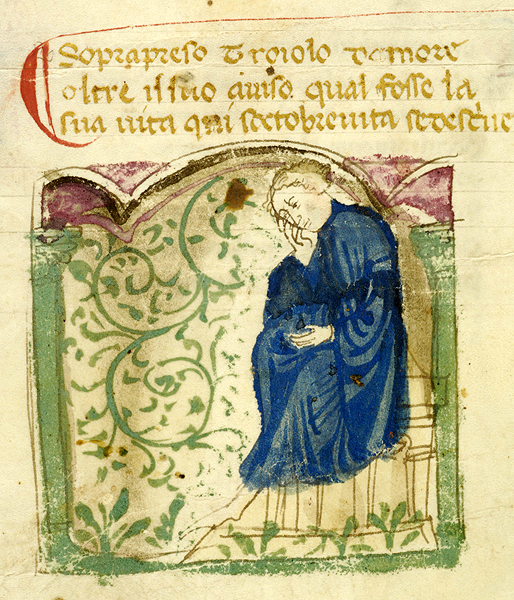 Soprapreso Troiolo damore
oltre issuo auiso qual fosse la
sua uita qui socto breuita sedescriue